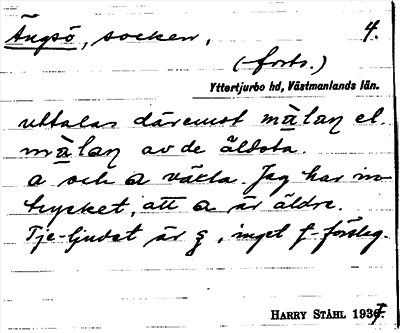 Ängsö, socken, 4.
(forts.)
Yttertjurbo hd, Västmanlands län.
uttalas däremot mälaŋ el.
mälaŋ av de äldsta.
a och ɑ växla. Jag har in-
trycket, att ɑ är äldre.
Tje-ljudet är ʂ, inget f-förslag.
HARRY STÅHL 1937.